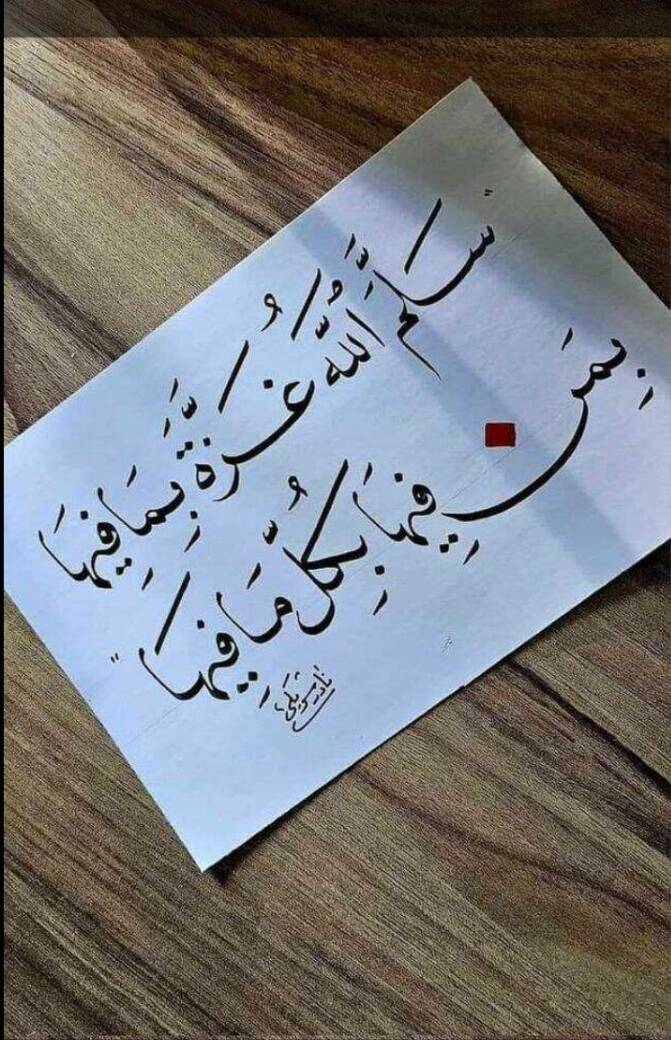 "سَلَّمَ اللَّهُ غَزَّةَ بِمَا فِيهَا
بِمَن فِيهَا بِكُلِّ مَا فِيهَا"